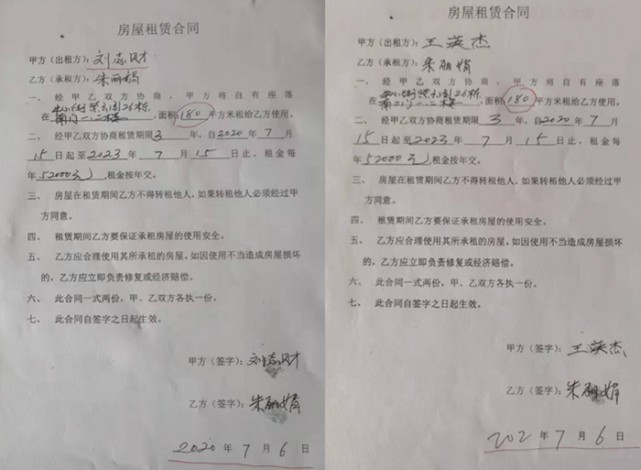 房屋租赁合同
甲方(出租方):刘志财
乙方(承租方):朱丽娟
一、 经甲乙双方协商,甲方将自有座落
在 ,面积180平方米租给乙方使用。
二、经甲乙双方协商租赁期限3年,自2020年7月
15日起至2023年7月15日止,租金每
年52000元,租金按年交。
三、 房屋在租赁期间乙方不得转租他人,如果转租他人必须经过甲
方同意。
四、 租赁期间乙方要保证承租房屋的使用安全。
五、 乙方应合理使用其所承租的房屋,如因使用不当造成房屋损坏
的,乙方应立即负责修复或经济赔偿。
六、 此合同一式两份,甲、乙双方各执一份。
七、 此合同自签字之日起生效。
甲方(签字):刘志财
乙方(签字):朱丽娟
2020年7月6日
房屋租赁合同
甲方(出租方):王 杰
乙方(承租方):朱丽娟
一、 经甲乙双方协商,甲方将自有座落
在 ,面积180平方米租给乙方使用。
二、经甲乙双方协商租赁期限3年,自2020年7月
15日起至2023年7月15日止,租金每
年52000元,租金按年交。
三、 房屋在租赁期间乙方不得转租他人,如果转租他人必须经过甲
方同意。
四、 租赁期间乙方要保证承租房屋的使用安全。
五、 乙方应合理使用其所承租的房屋,如因使用不当造成房屋损坏
的,乙方应立即负责修复或经济赔偿。
六、 此合同一式两份,甲、乙双方各执一份。
七、 此合同自签字之日起生效。
甲方(签字):王 杰
乙方(签字):朱丽娟
202 年7月6日